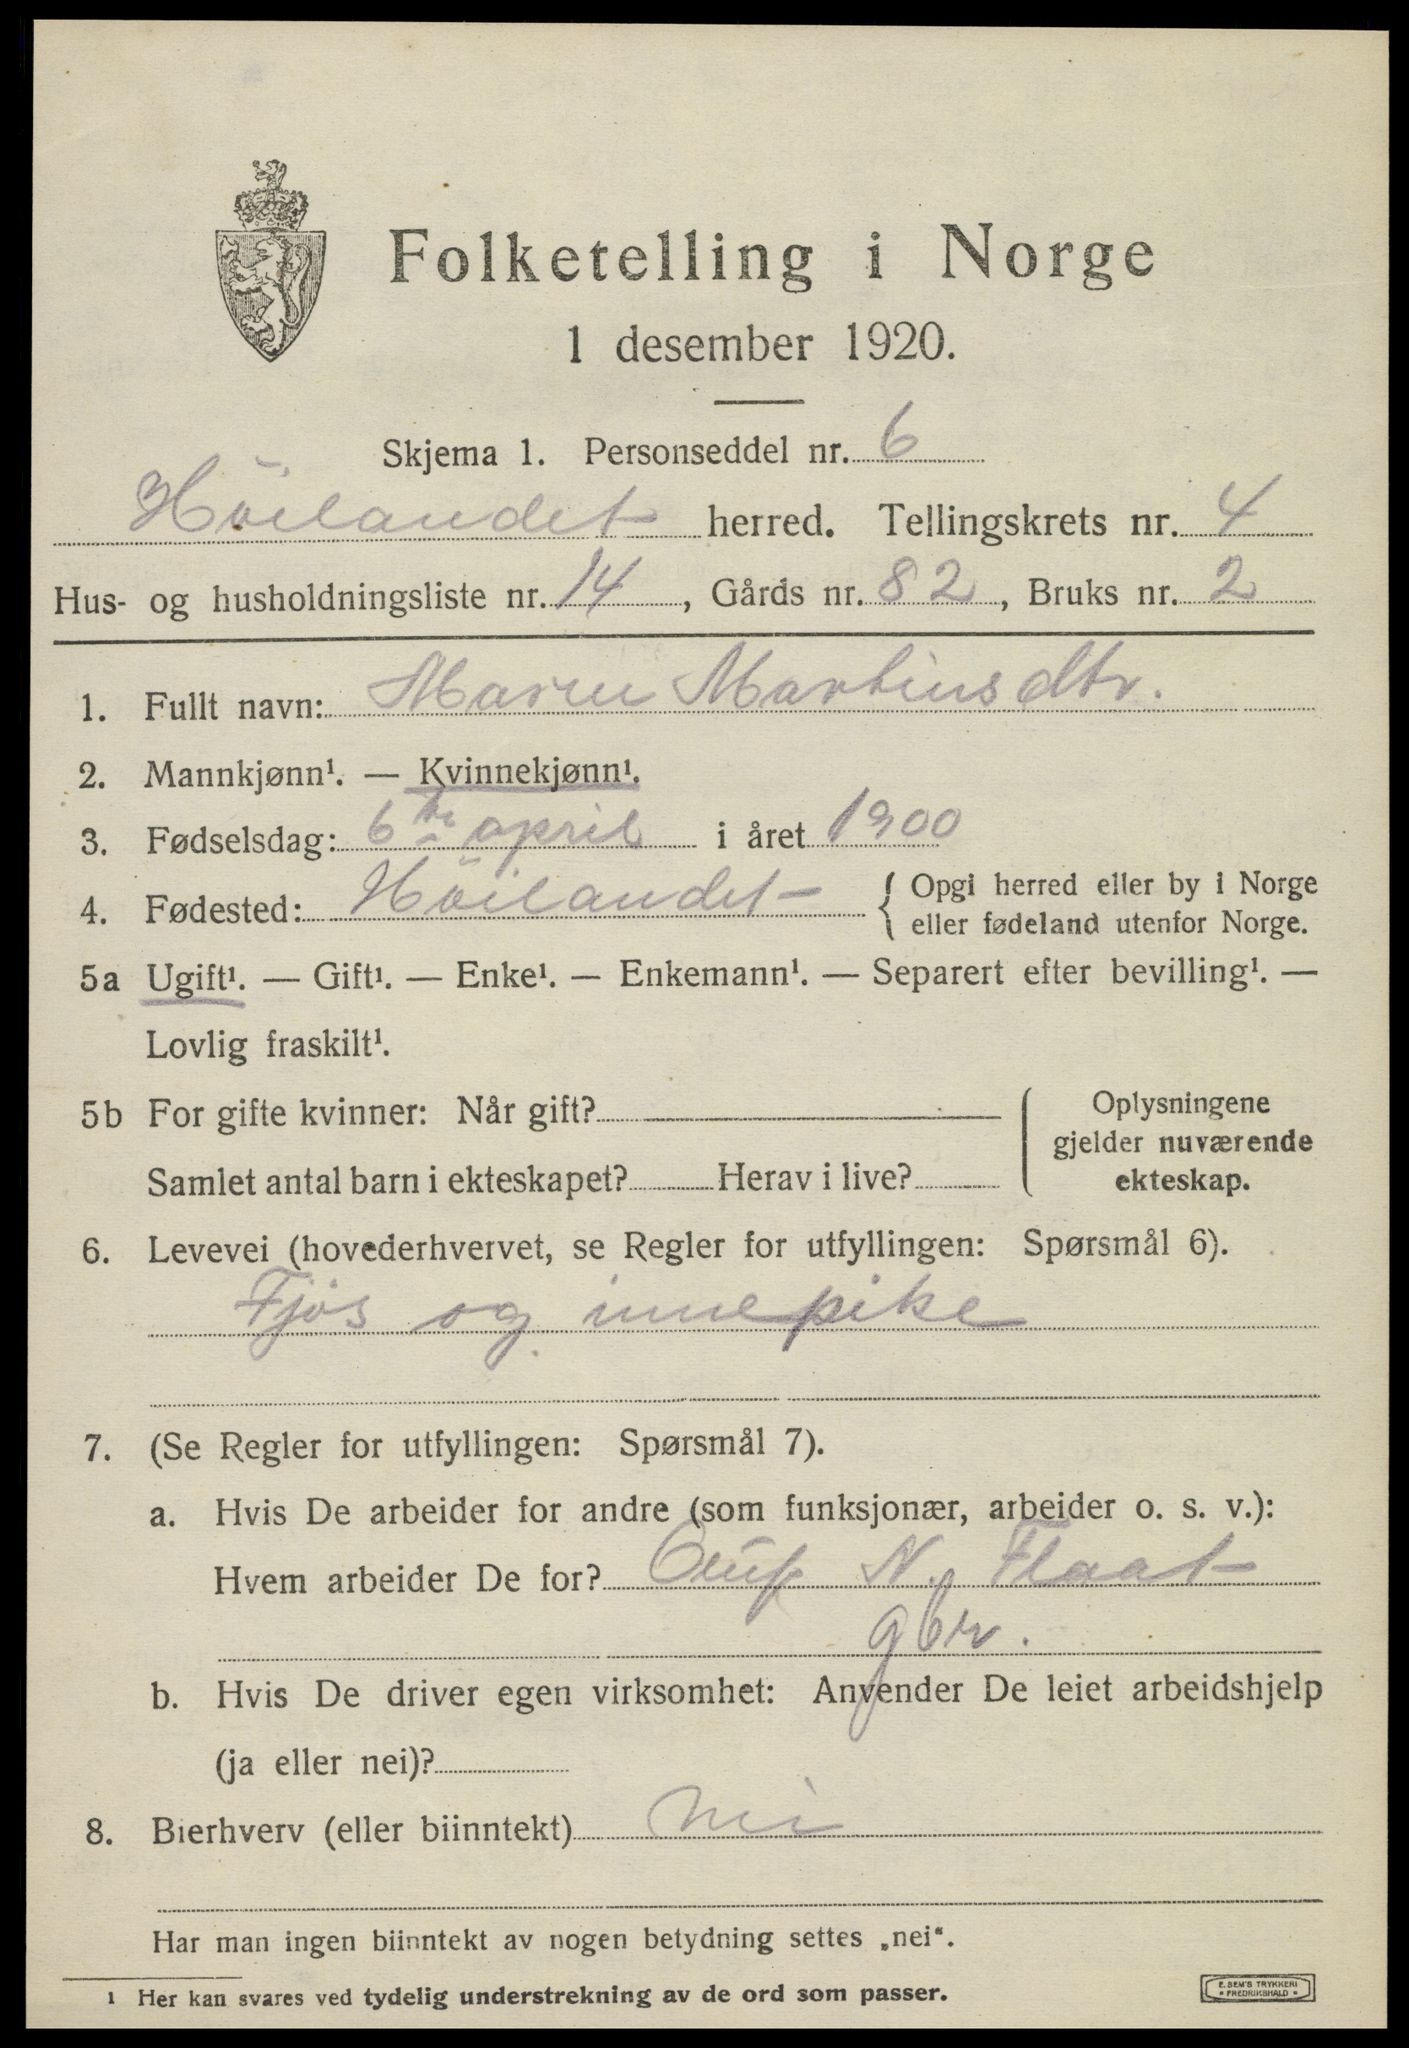 Folketelling i Norge
1 desember 1920.
Skjema 1. Personseddel nr. 6
Höilandet herred. Tellingskrets nr. 4
Hus- og husholdningsliste nr. 14, Gårds nr. 82, Bruks nr. 2
1. Fullt navn: Maren Martinsdtr.
2. Mannkjønn¹. — Kvinnekjønn¹.
3. Fødselsdag: 6te april i året 1900
4. Fødested: Höilandet { Opgi herred eller by i Norge
eller fødeland utenfor Norge.
5a Ugift¹. — Gift¹. — Enke¹. — Enkemann¹. — Separert efter bevilling¹. —
Lovlig fraskilt¹.
5b For gifte kvinner: Når gift?
Samlet antal barn i ekteskapet? Herav i live?
Oplysningene
gjelder nuværende
ekteskap.
6. Levevei (hovederhvervet, se Regler for utfyllingen: Spørsmål 6).
Fjös og innepike
7. (Se Regler for utfyllingen: Spørsmål 7).
a. Hvis De arbeider for andre (som funksjonær, arbeider o. s. v.):
Hvem arbeider De for? N. Flaat
gbr.
b. Hvis De driver egen virksomhet: Anvender De leiet arbeidshjelp
(ja eller nei)?
8. Bierhverv (eller biinntekt) nei
Har man ingen biinntekt av nogen betydning settes „nei“.
1 Her kan svares ved tydelig understrekning av de ord som passer.
E. SEM'S TRYKKERI
• FREDRIKSHALD •